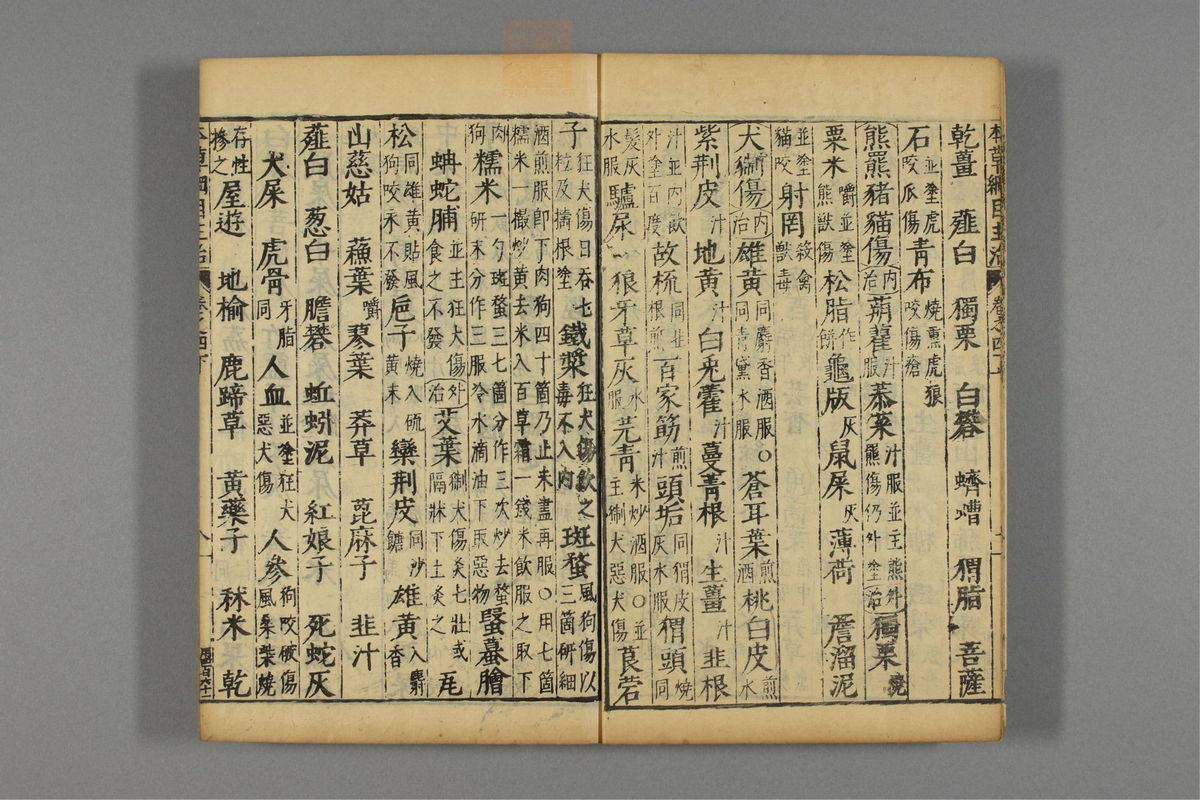 乾薑 薤白 獨栗 白礬 蠐螬 猬脂 菩薩
石並塗虎咬爪傷 青布燒熏虎狼咬傷瘡
熊羆豬貓傷內治 蒴藋汁服 菾菜汁服並主熊傷仍外塗 外治 獨栗燒
粟米嚼並塗熊獸傷 松脂作餅 龜版灰 鼠屎灰 薄荷 詹溜泥
並塗貓咬 射罔殺禽獸毒
犬猘傷內治 雄黃同麝香酒服同青黛水服○ 蒼耳葉煎酒 桃白皮煎水
紫荆皮汁 地黃汁 白兎藿汁 蔓青根汁 生薑汁 韭根
汁並內飲外塗百度 故梳同韭根煎 百家筯煎汁 頭垢同猬皮灰水服 猬頭燒同
髮灰水服 驢尿 狼牙草灰水服 芫青米炒酒服○並主猘犬惡犬傷 莨菪
子狂犬傷日吞七粒及擣根塗 鐵漿狂犬傷飲之毒不入內 斑蝥風狗傷以三箇研細
酒煎服即下肉狗四十箇乃止未盡再服○用七箇糯米一撮炒黃去米入百草霜一錢米飲服之取下
肉狗 糯米一勺斑蝥三七箇分作三次炒去蝥研末分作三服冷水滴油下取惡物 蟹蟇膾
蚺蛇脯並主狂犬傷食之不發 外治 艾葉猘犬傷灸七壯或隔牀下土灸之 瓦
松同雄黃貼風狗咬永不發 巵子燒入硫黃末 欒荆皮同沙糖 雄黃入麝香
山慈姑 蘓葉嚼 蓼葉 莽草 蓖麻子 韭汁
薤白 葱白 膽礬 蚯蚓泥 紅娘子 死蛇灰
犬屎 虎骨牙脂同 人血並塗狂犬惡犬傷 人參狗咬破傷風桑柴燒
存性摻之 屋遊 地榆 鹿蹄草 黃藥子 秫米 乾